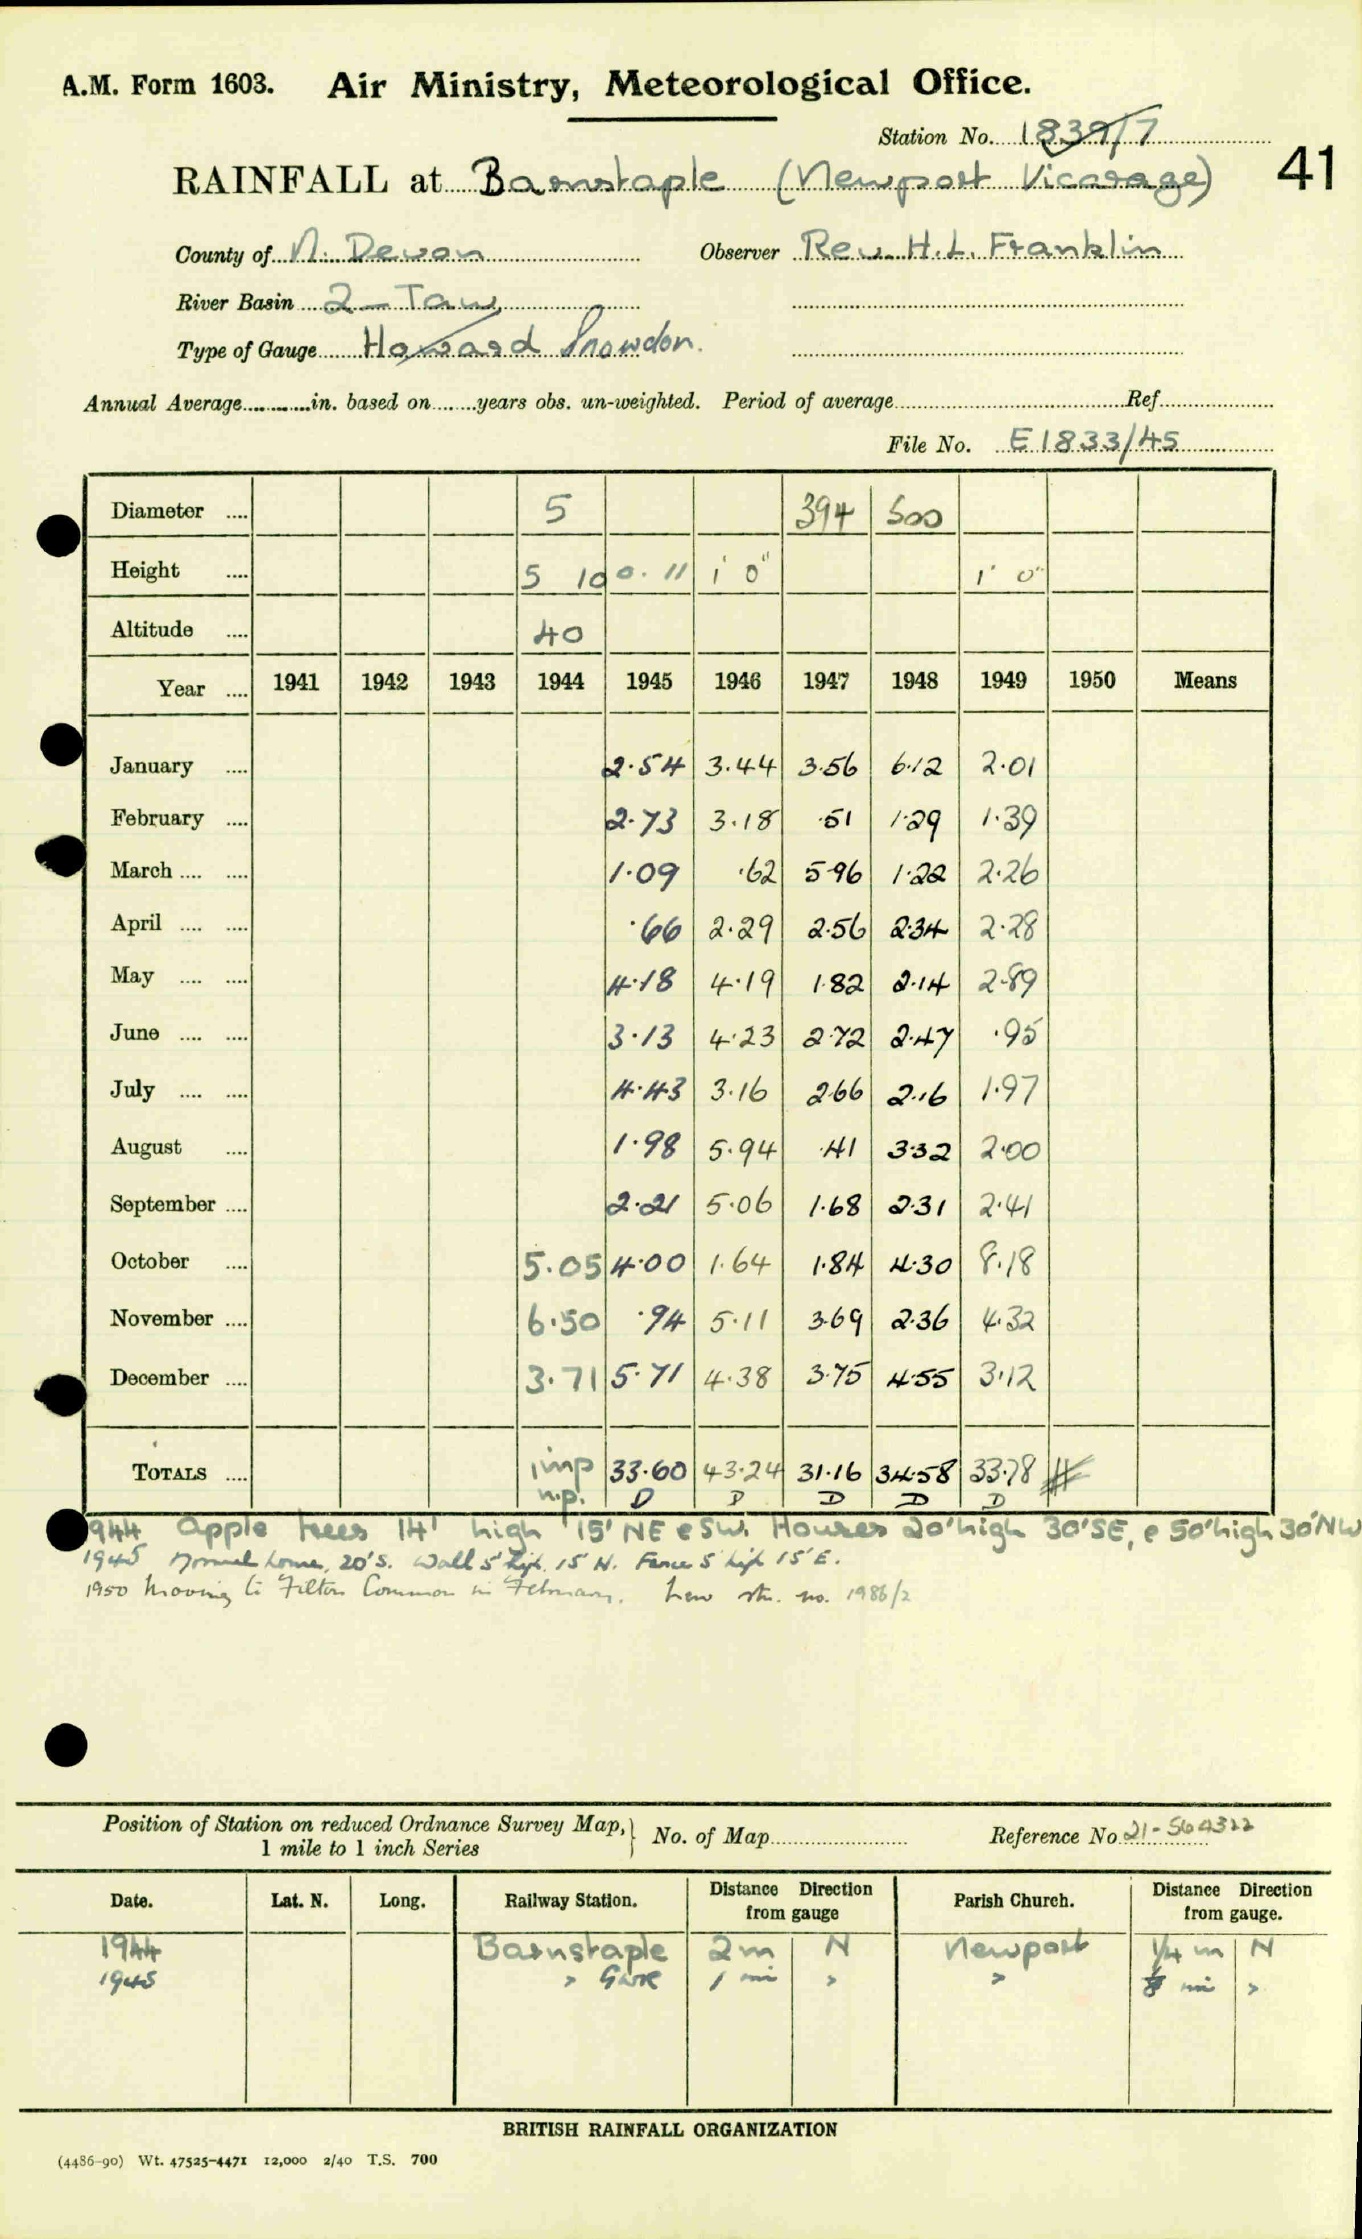 A.M. Form 1603. Air Ministry, Meteorological Office.
Station No. 1839/7
41
RAINFALL at Barnstaple (Newport Vicarage)
County of N. Devon Observer Rev. H.L. Franklin
River Basin 2 - Taw
Type of Gauge Howard Snowdon.
Annual Average............in. based on........years obs. un-weighted. Period of average Ref.
File No. E1833/45
Diameter .... 5 394 500
Height .... 5 10 0.11 1' 0" 1' 0"
Altitude .... 40
Year .... 1941 1942 1943 1944 1945 1946 1947 1948 1949 1950 Means
January .... 2.54 3.44 3.56 6.12 2.01
February .... 2.73 3.18 .51 1.29 1.39
March .... .... 1.09 .62 5.96 1.22 2.26
April .... .... .66 2.29 2.56 2.34 2.28
May .... .... 4.18 4.19 1.82 2.14 2.89
June .... .... 3.13 4.23 2.72 2.47 .95
July .... .... 4.43 3.16 2.66 2.16 1.97
August .... 1.98 5.94 .41 3.32 2.00
September .... 2.21 5.06 1.68 2.31 2.41
October .... 5.05 4.00 1.64 1.84 4.30 8.18
November .... 6.50 .94 5.11 3.69 2.36 4.32
December .... 3.71 5.71 4.38 3.75 4.55 3.12
TOTALS .... imp 33.60 43.24 31.16 34.58 33.78
n.p. D D D D D
1944 Apple trees 14' high 15' NE & SW. Houses 20' high 30' SE, & 50' high 30' NW
1945 house, 20' S. Wall 5' high 15' N. Fence 5' high 15' E.
1950 Moving to Filton Common in February. New stn. no. 1986/2
Position of Station on reduced Ordnance Survey Map, 1 mile to 1 inch Series
No. of Map Reference No 21-564322
Date. Lat. N. Long. Railway Station. Distance Direction from gauge Parish Church. Distance Direction from gauge.
1944 Barnstaple 2 m N Newport 1/4 m N
1945 " GWR 1 mi " " mi "
BRITISH RAINFALL ORGANIZATION
(4486-90) Wt. 47525-4471 12,000 2/40 T.S. 700